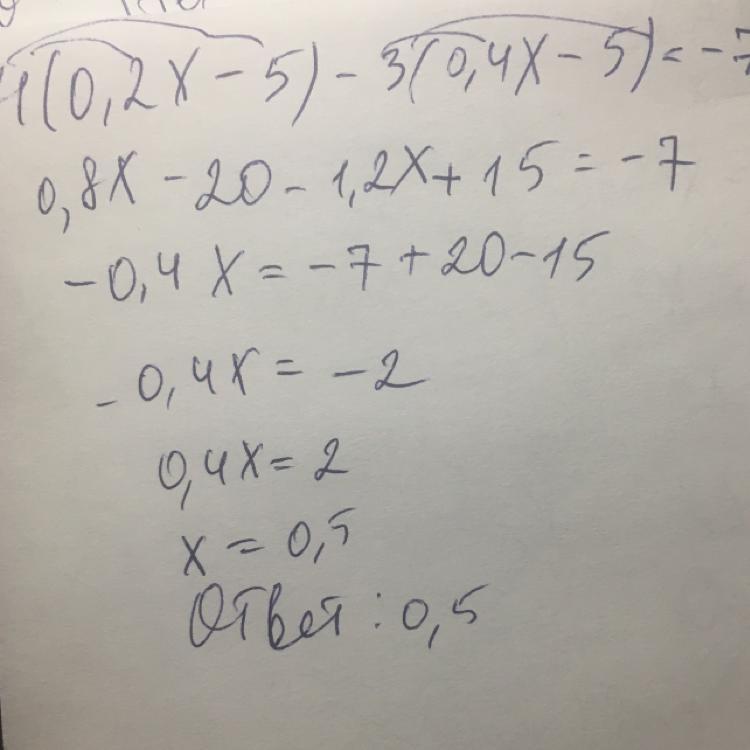 4(0,2x - 5) - 3(0,4x - 5) = -7
0,8x - 20 - 1,2x + 15 = -7
-0,4x = -7 + 20 - 15
-0,4x = -2
0,4x = 2
x = 0,5
Ответ: 0,5